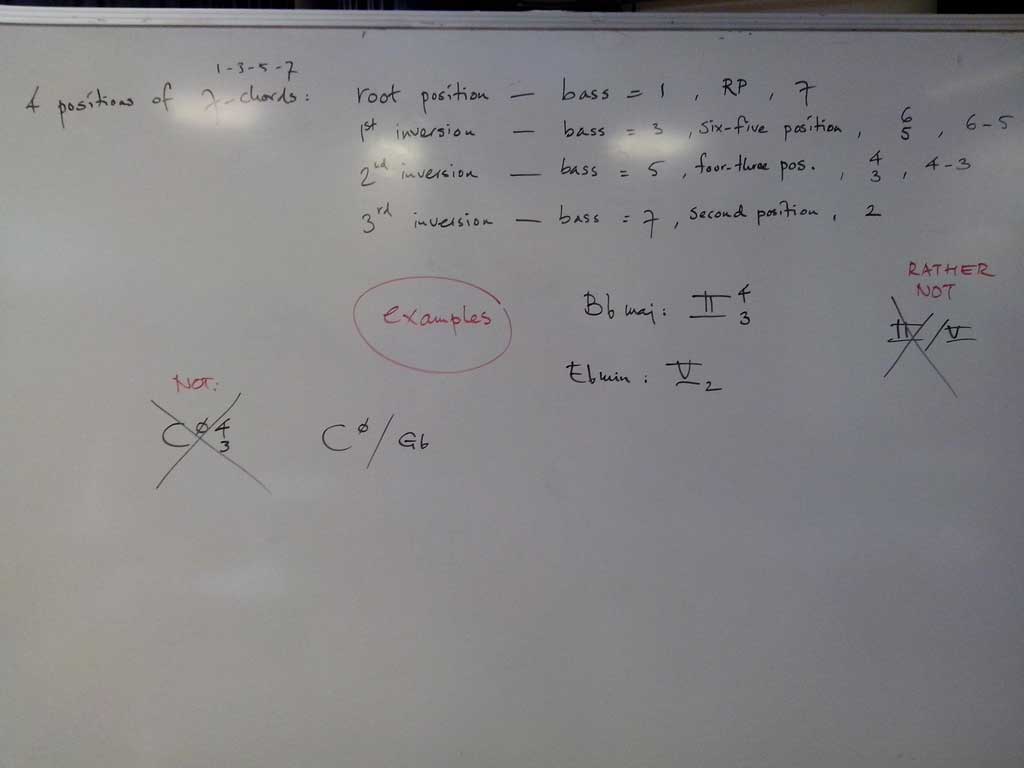 1-3-5-7
4 positions of 7-chords: root position — bass = 1, RP, 7
1st inversion — bass = 3, six-five position, 6 5, 6-5
2nd inversion — bass = 5, four-three pos., 4 3, 4-3
3rd inversion — bass = 7, second position, 2
examples
Bb maj: II 4 3
RATHER
NOT
II/V
Eb min: V 2
NOT:
C ø 4 3
C ø / Gb